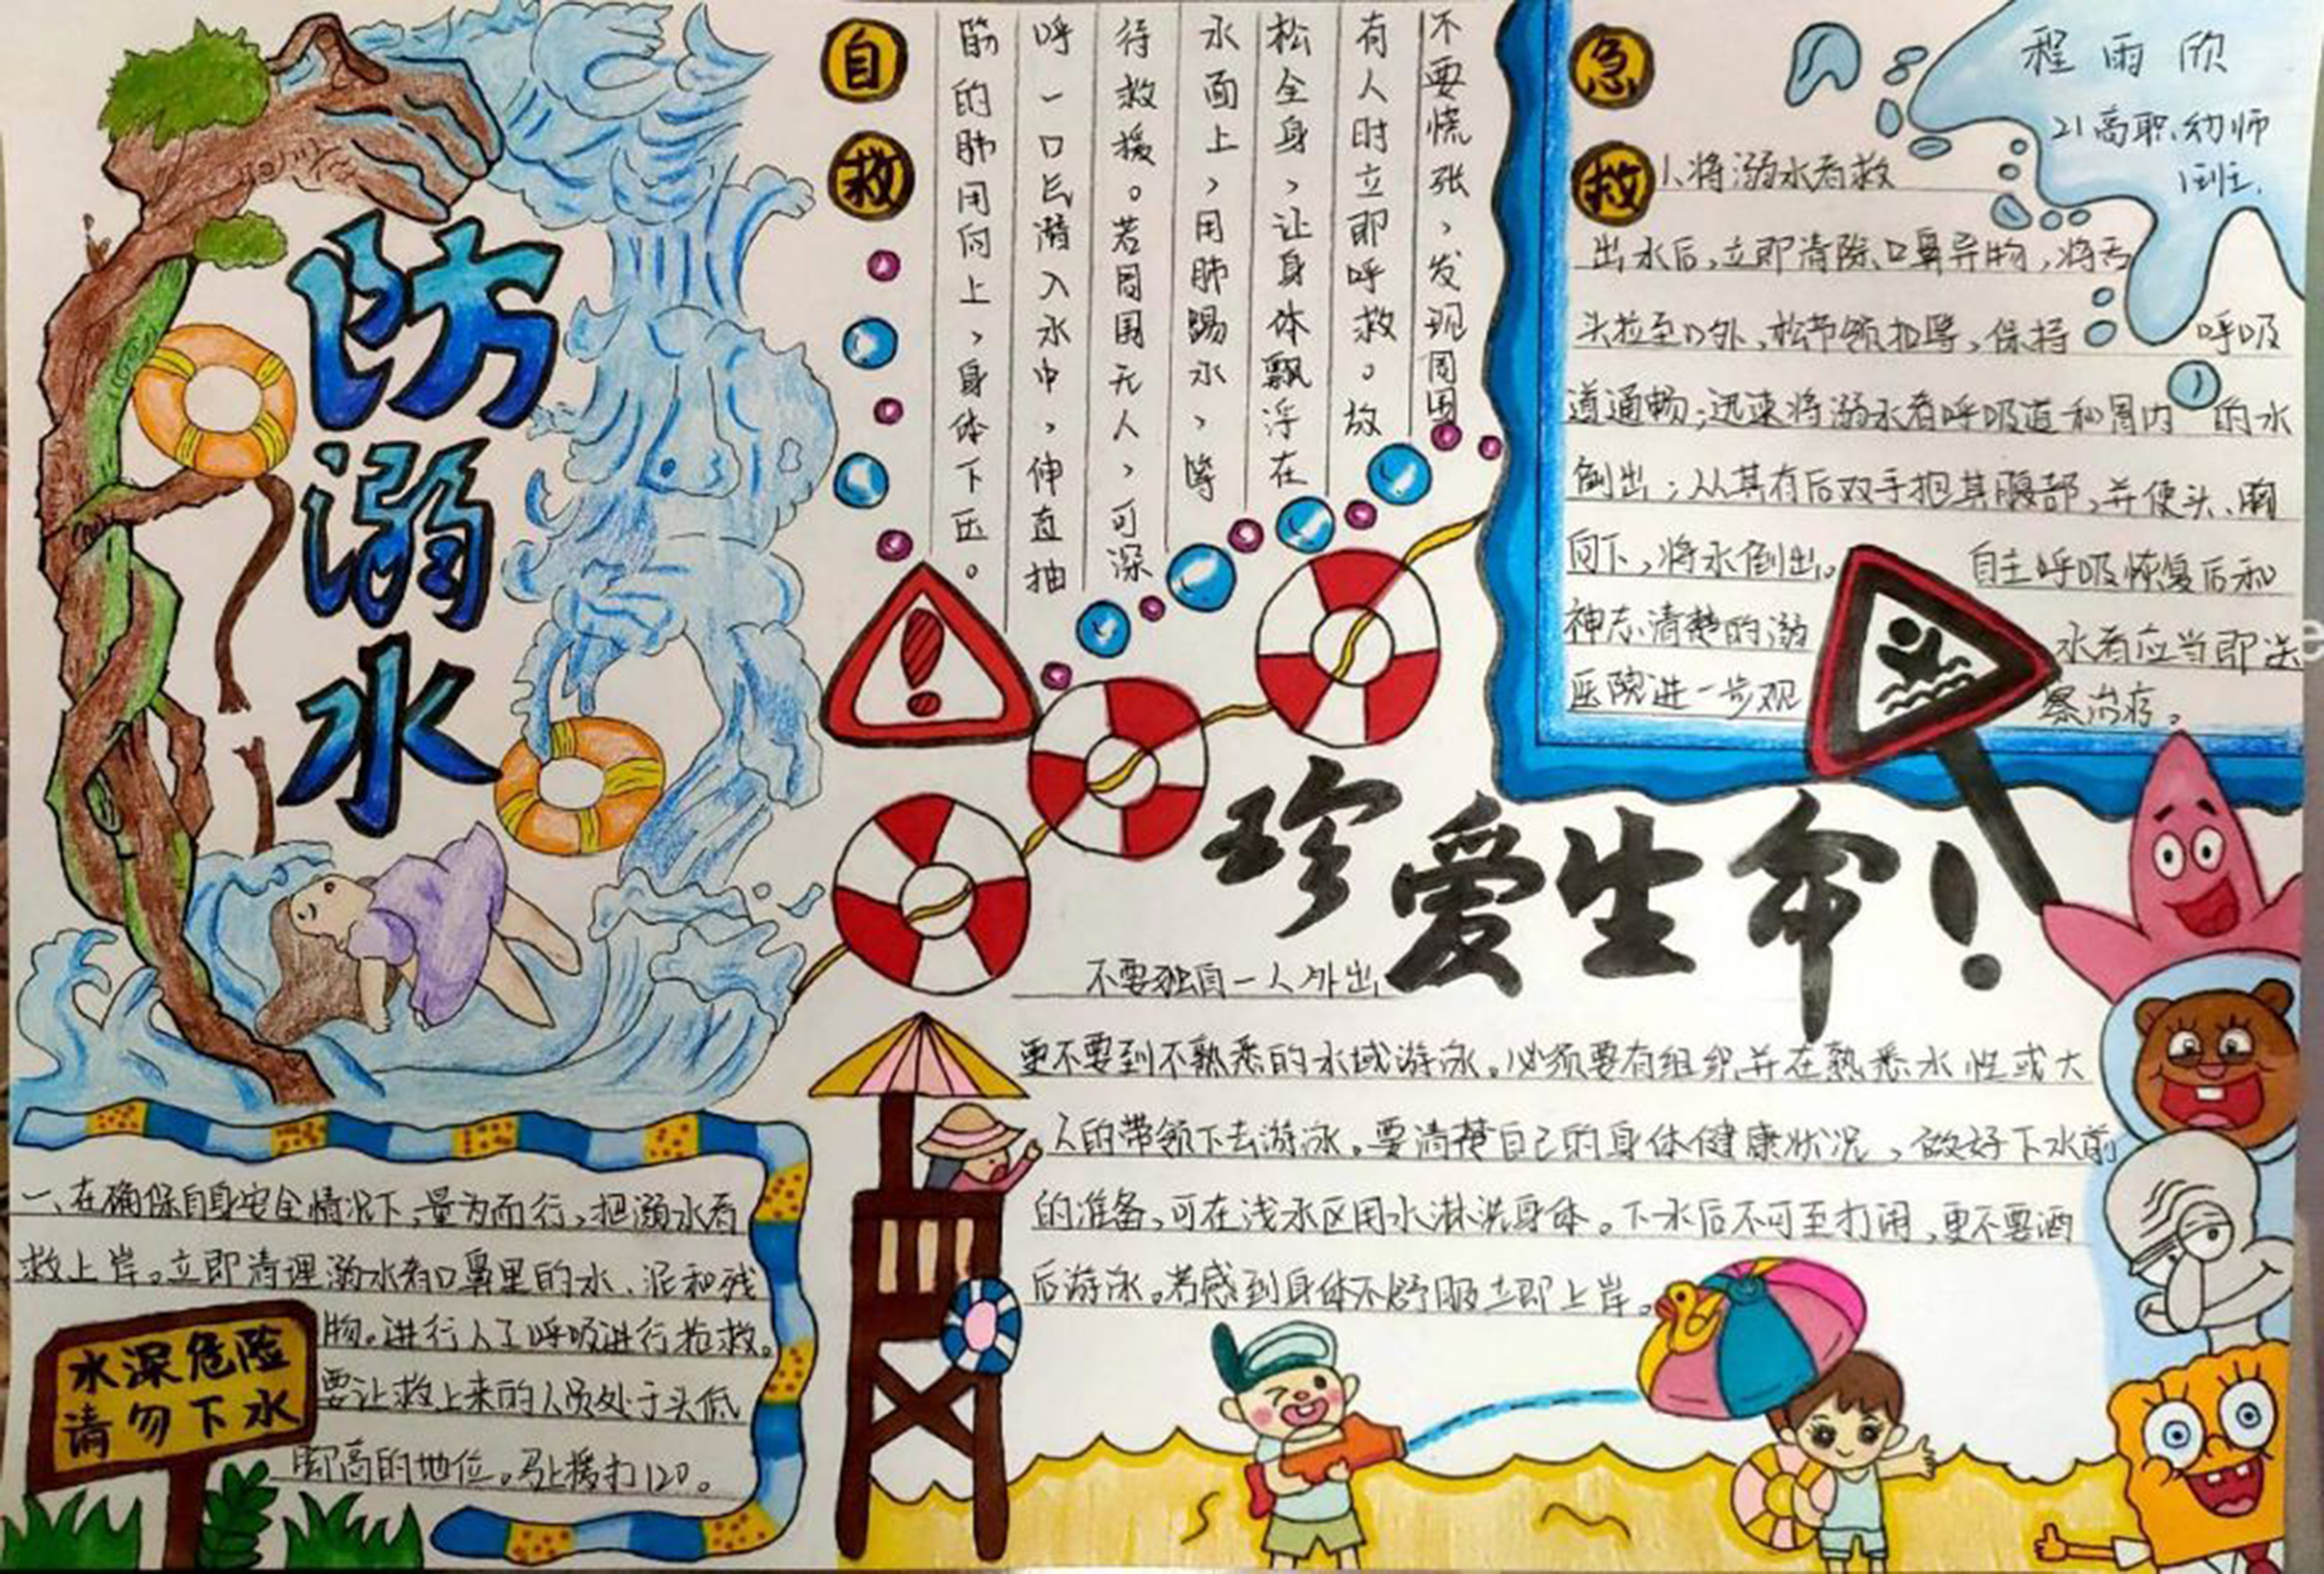 防溺水
自救
不要慌张，发现周围
有人时立即呼救。放
松全身，让身体飘浮在
水面上，用脚踢水，等
待救援。若周围无人，可深
呼一口气潜入水中，伸直抽
筋的脚用向上，身体下压。
急救
程雨欣
21高职幼师
1班
1、将溺水者救
出水后，立即清除口鼻异物，将舌
头拉至口外，松节领扣等，保持呼吸
道通畅；迅速将溺水者呼吸道和胃内的水
倒出；从其有后双手抱其腹部，并使头、胸
向下，将水倒出。自主呼吸恢复后和
神志清楚的溺水者应当即送
医院进一步观察治疗。
珍爱生命！
不要独自一人外出
更不要到不熟悉的水域游泳。必须要有组织并在熟悉水性或大
人的带领下去游泳。要清楚自己的身体健康状况，做好下水前
的准备，可在浅水区用水淋洗身体。下水后不可至打闹，更不要酒
后游泳。若感到身体不舒服立即上岸。
一、在确保自身安全情况下，量为而行，把溺水者
救上岸。立即清理溺水者口鼻里的水、泥和残
物。进行人工呼吸进行抢救。
要让救上来的人员处于头低
脚高的地位。马上拨打120。
水深危险
请勿下水